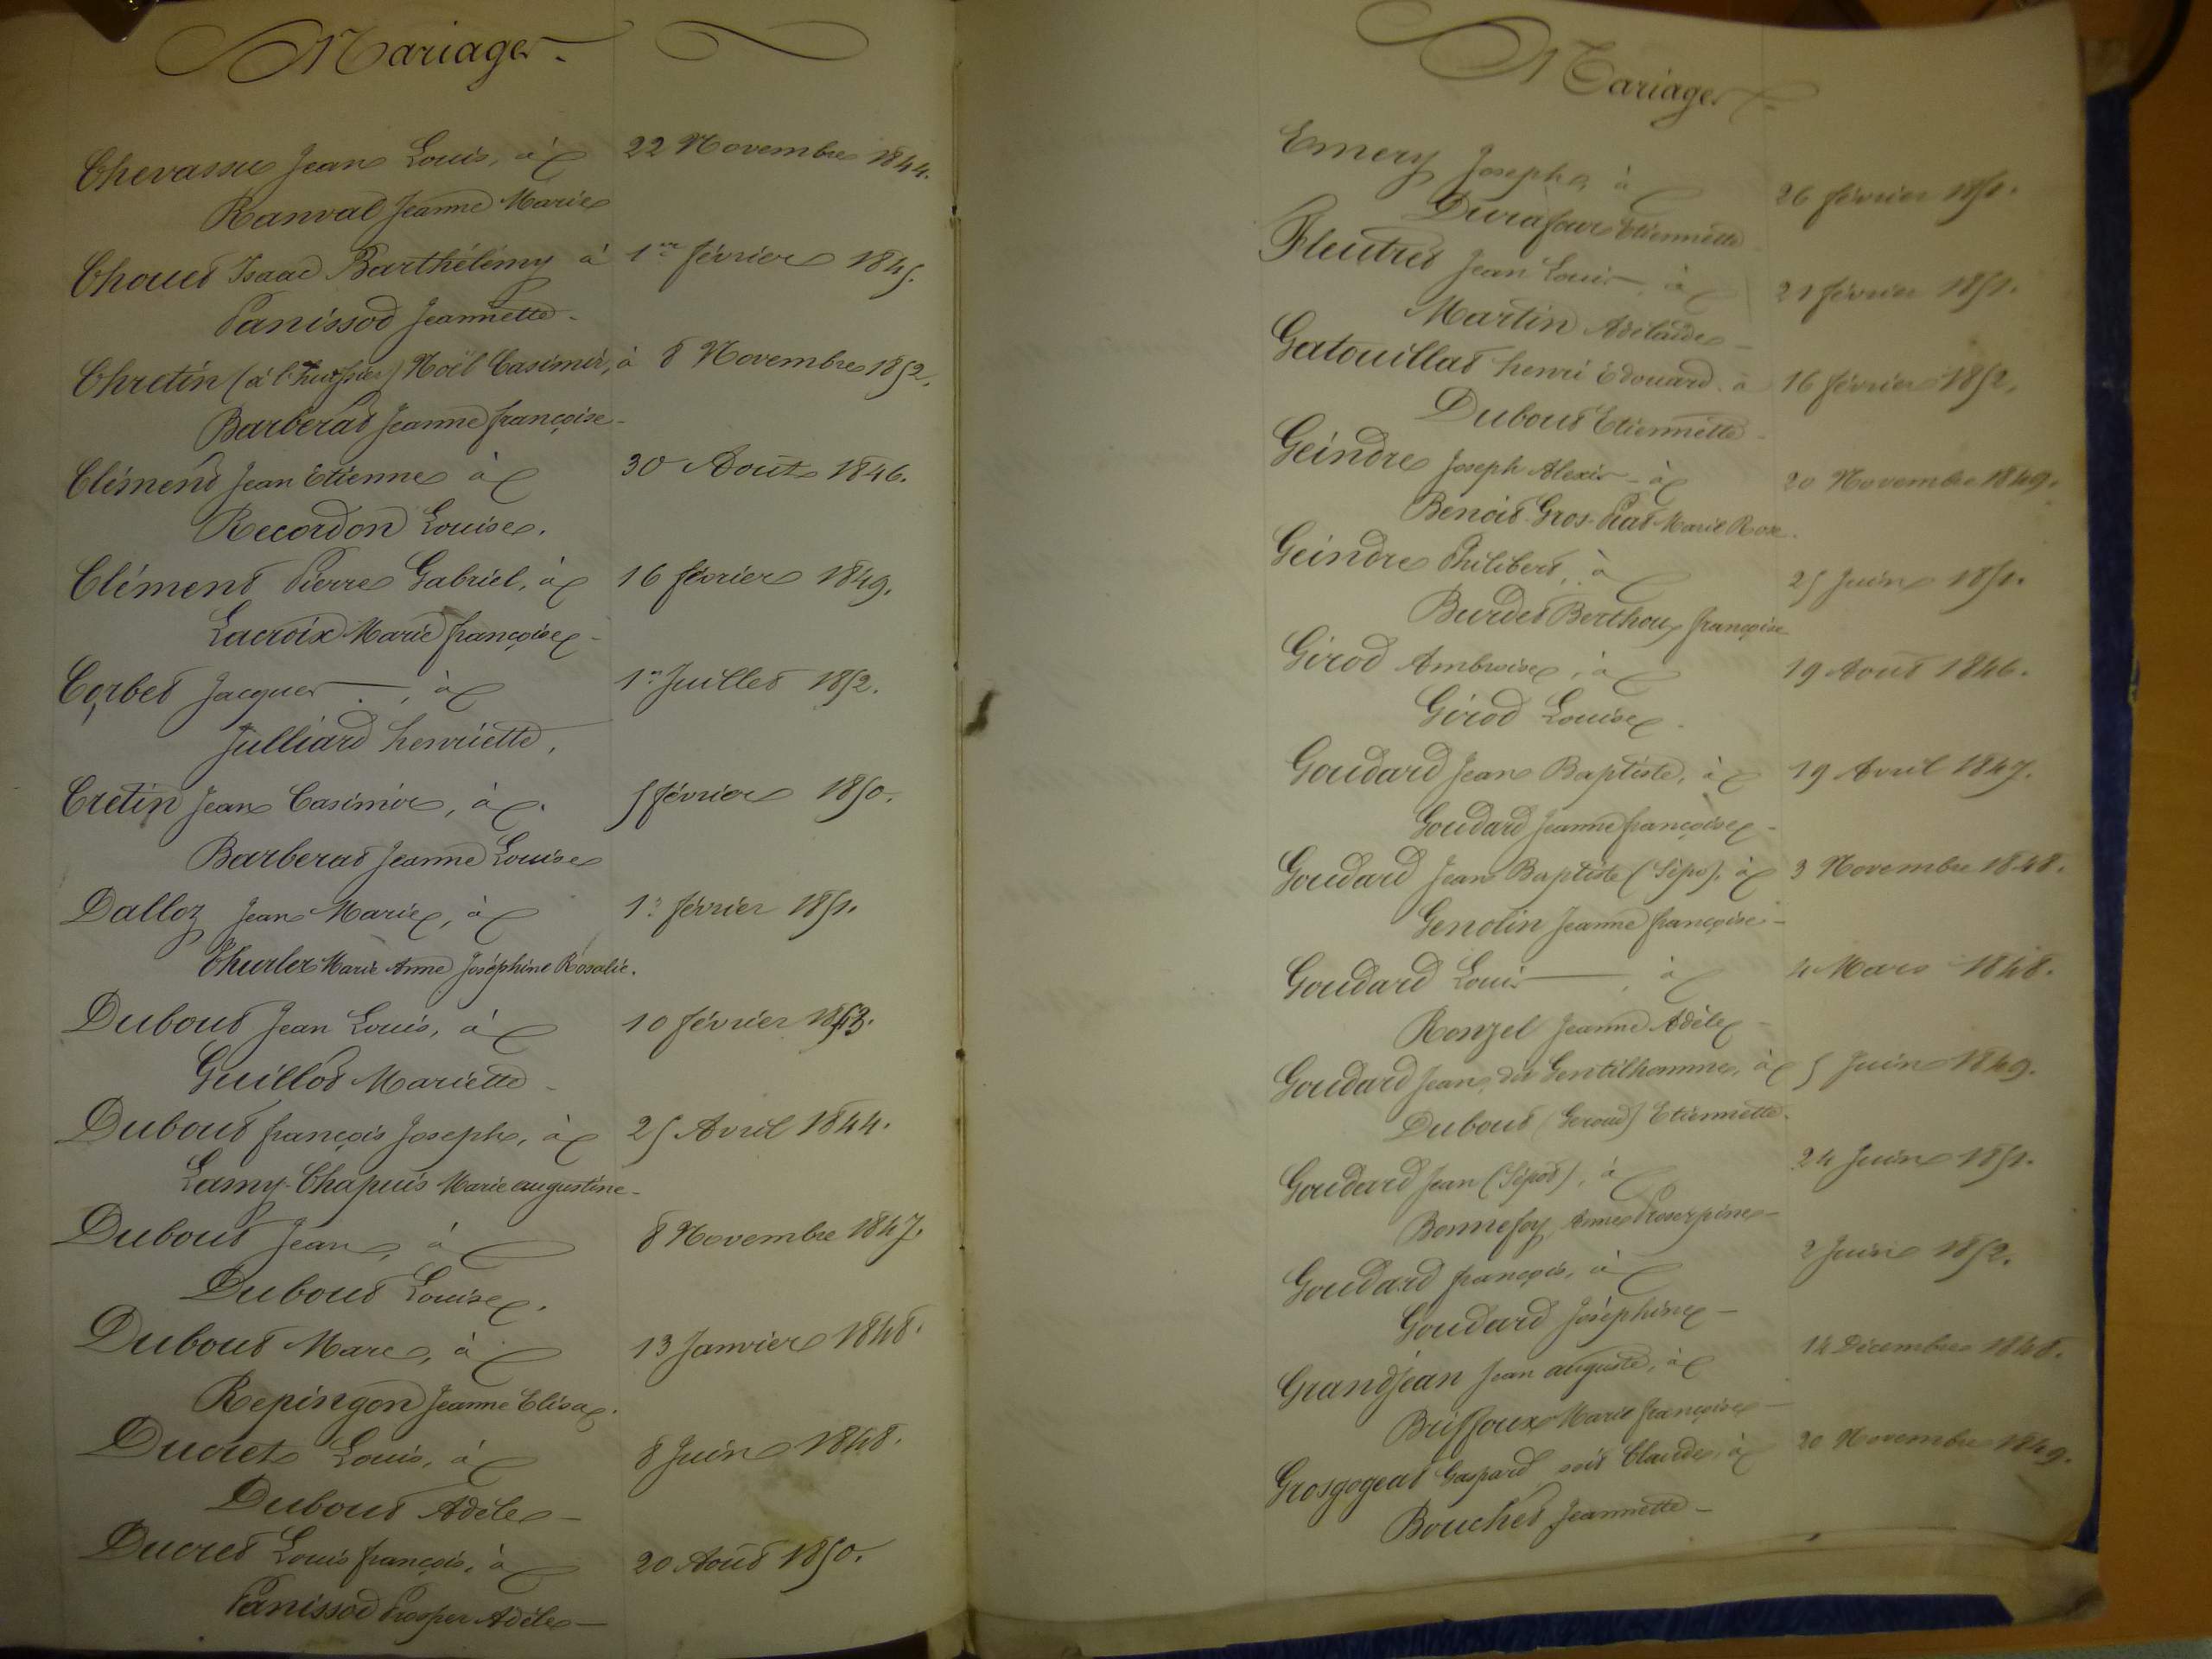 Mariages
Chevassu Jean Louis, à 22 Novembre 1844.
Ranval Jeanne Marie
Chouet Isaac Barthélémy à 1er février 1845.
Panissod Jeannette
Chretin (à l'huissier) Noël Casimir, à 8 Novembre 1852.
Barberat Jeanne françoise
Clément Jean Etienne à 30 Août 1846.
Recordon Louise.
Clément Pierre Gabriel, à 16 février 1849.
Lacroix Marie françoise
Corbet Jacques, à 1er Juillet 1852.
Julliard henriette,
Cretin Jean Casimir, à 5 février 1850.
Barberat Jeanne Louise
Dalloz Jean Marie, à 1er février 1851.
Thurler Marie Anne Joséphine Rosalie.
Dubout Jean Louis, à 10 février 1843.
Guillot Mariette
Dubout françois Joseph, à 25 Avril 1844.
Lamy-Chapuis Marie augustine
Dubout Jean, à 8 Novembre 1847.
Dubout Louise.
Dubout Marc, à 13 Janvier 1848.
Repingon Jeanne Elisa.
Ducret Louis, à 8 Juin 1848.
Dubout Adèle
Ducret Louis françois, à 20 Août 1850.
Panissod Prosper Adèle
Mariages
Emery Joseph, à 26 février 1851.
Durafour Etiennette
Fleutret Jean Louis, à 21 février 1851.
Martin Adélaïde
Gatouillat henri édouard à 16 février 1852.
Dubout Etiennette
Geindre Joseph Alexis à 20 Novembre 1849.
Benoit-Gros-Piat Marie Rose
Geindre Philibert, à 25 Juin 1851.
Burdet Berthoux françoise
Girod Ambroise, à 19 Août 1846.
Girod Louise
Goudard Jean Baptiste, à 19 Avril 1847.
Goudard Jeanne françoise
Goudard Jean Baptiste (Pipo), à 3 Novembre 1848.
Genolin Jeanne françoise
Goudard Louis, à 4 Mars 1848.
Ronzel Jeanne Adèle
Goudard Jean, dit Gentilhomme, à 5 Juin 1849.
Dubout (Geroud) Etiennette.
Goudard Jean (Pipot), à 24 Juin 1851.
Bonnefoy, Anne Proserpine
Goudard françois, à 2 Juin 1852.
Goudard Joséphine
Grandjean Jean auguste, à 14 Décembre 1848.
Briffoux Marie françoise
Grosgogeat Gaspard soit Claude, à 20 Novembre 1849.
Bouchet Jeannette